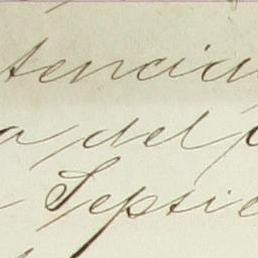 tencia
a del
Septie